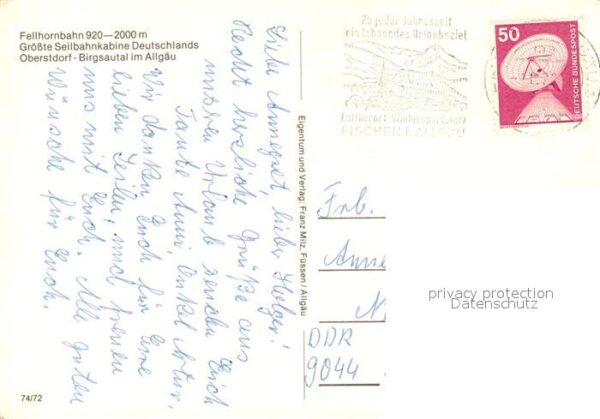 Fellhornbahn 920—2000 m
Größte Seilbahnkabine Deutschlands
Oberstdorf - Birgsautal im Allgäu
Liebe Annegret, lieber Helger!
Recht herzliche Grüße aus
unserem Urlaub senden Euch
Tante Anni, Onkel Artur.
Wir danken Euch für Eure
lieben Zeilen, und freuen
uns mit Euch. Alle guten
Wünsche für Euch.
74/72
Eigentum und Verlag: Franz Milz, Füssen/Allgäu
Zu jeder Jahreszeit
ein lohnendes Urlaubsziel
Luftkurort - Wintersportplatz
FISCHEN I. ALLGÄU
50
DEUTSCHE BUNDESPOST
Frb.
Anne
N
DDR
9044
privacy protection
Datenschutz